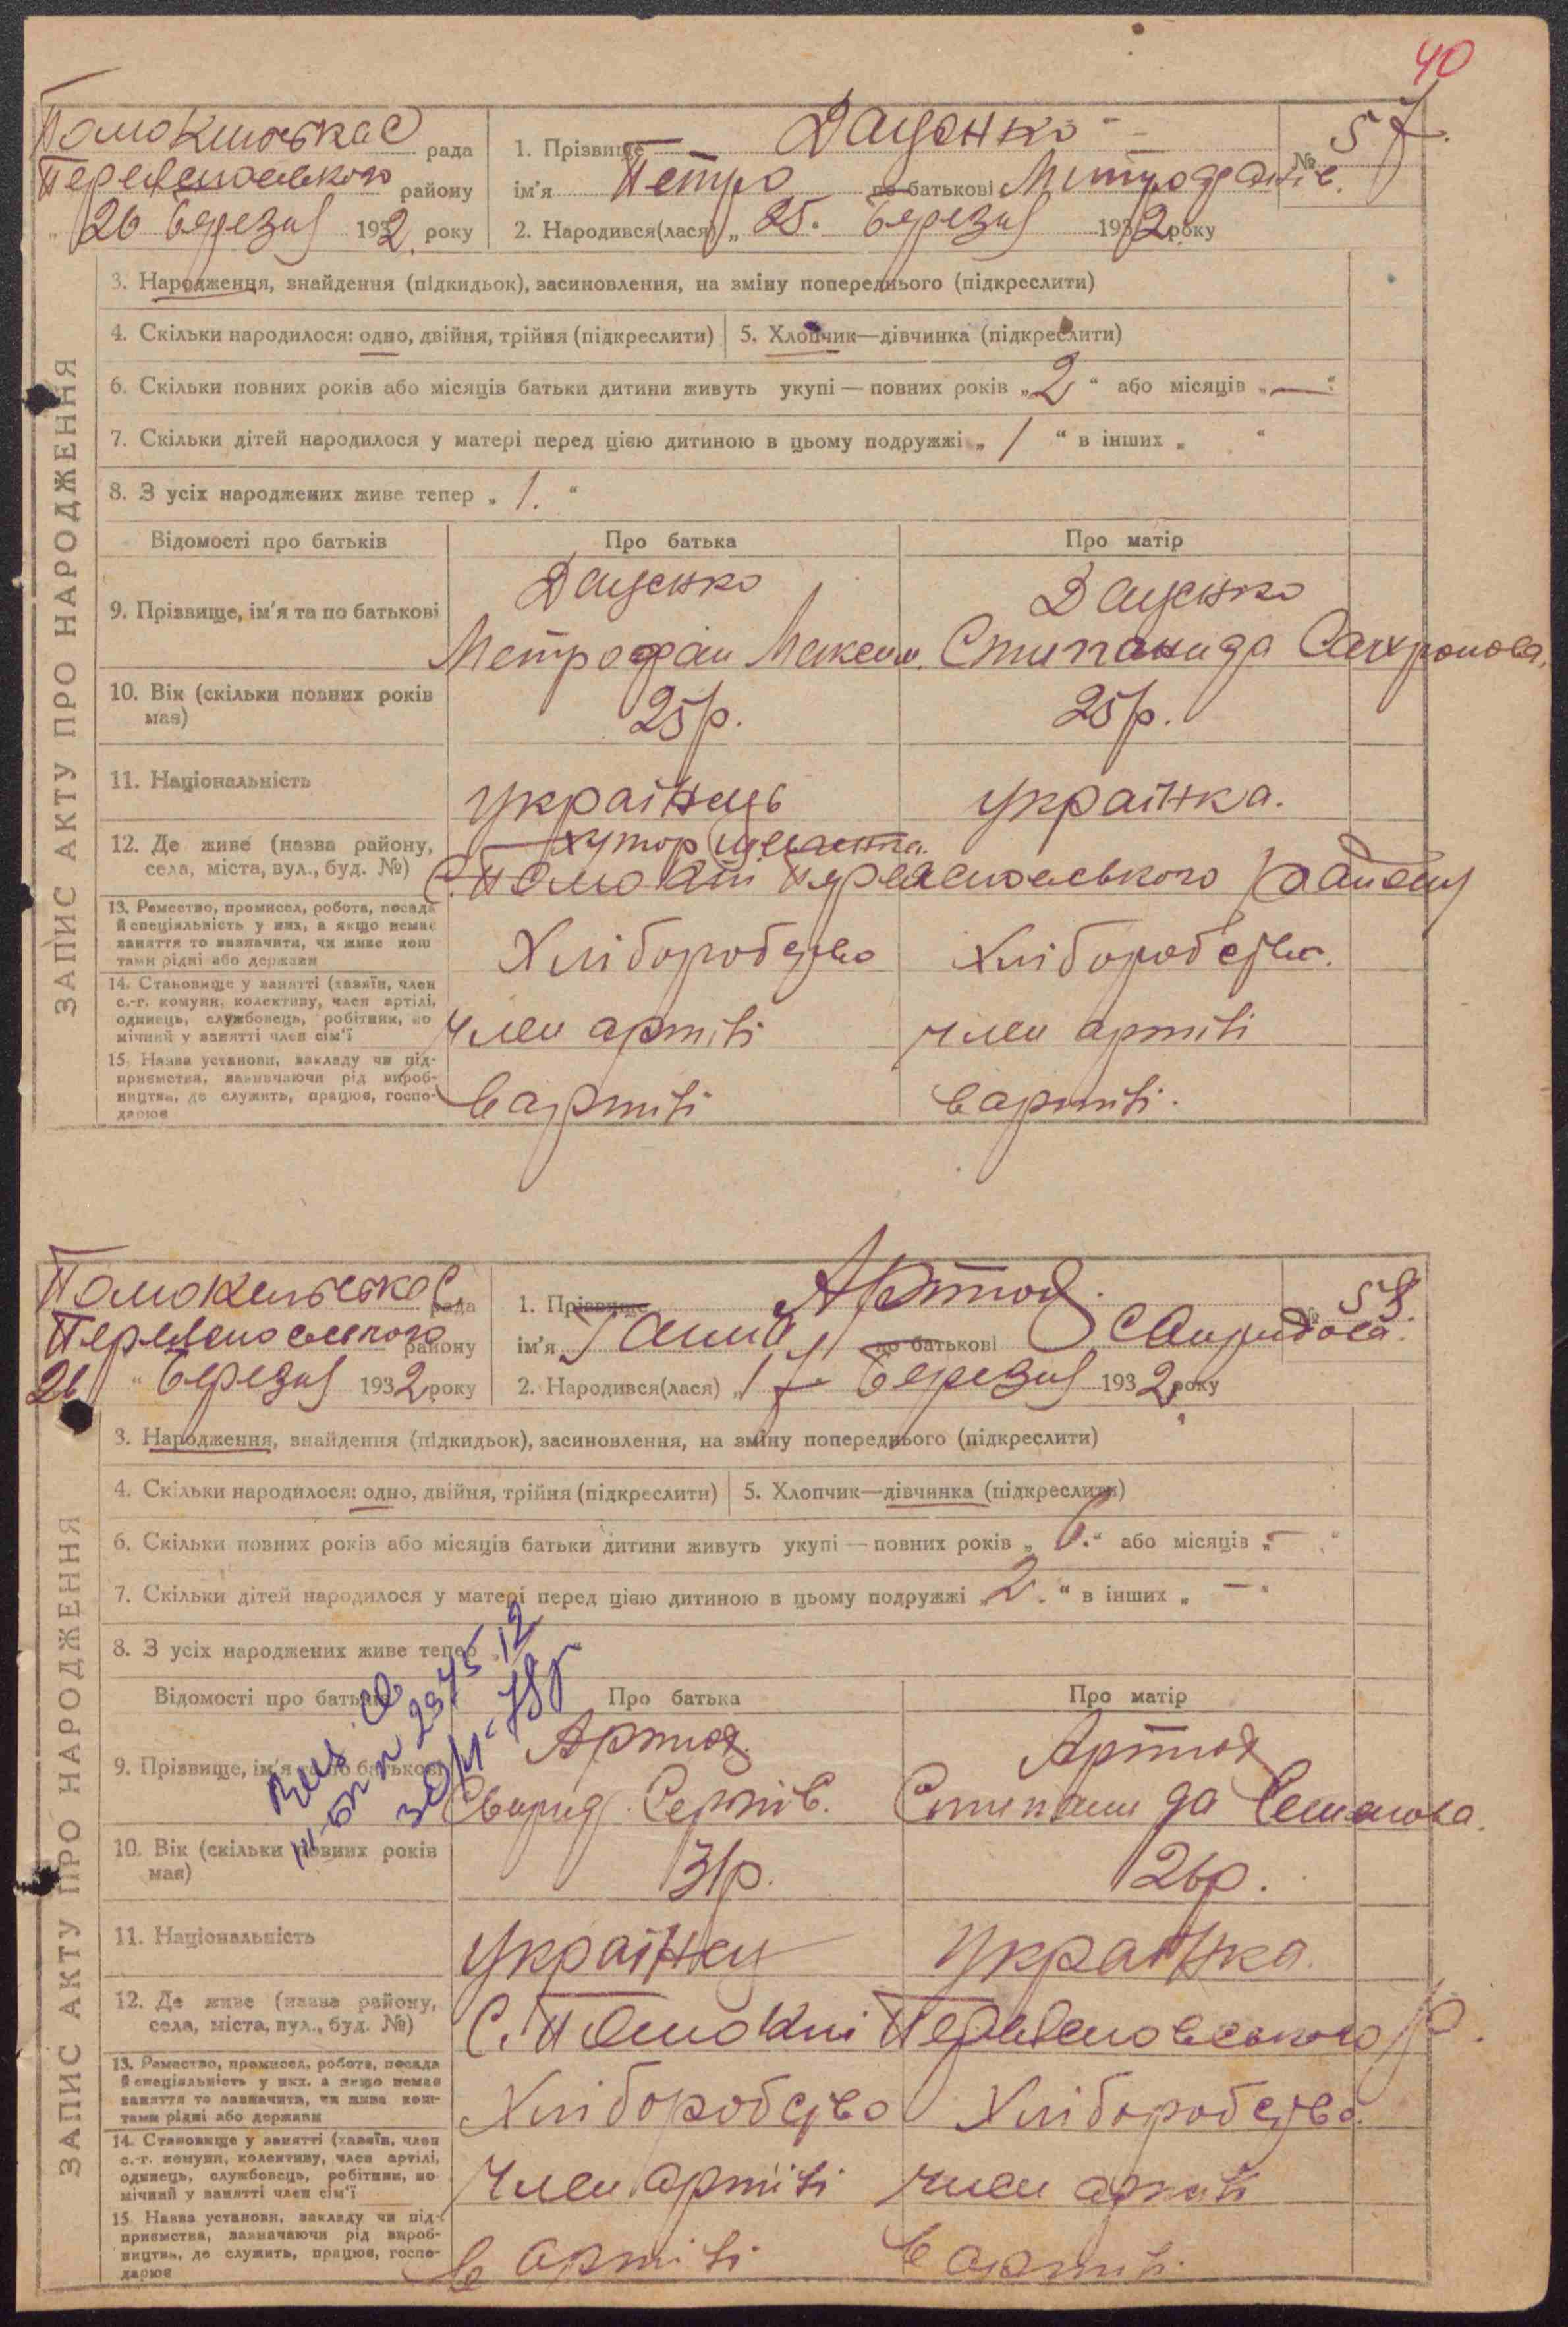 40
Помоклиська С рада
Переяславського району
26 березня 1932 року
1. Прізвище Даценко
№ 57.
ім'я Петро по батькові Митрофанів.
2. Народився(лася) „ 25. березня 1932 року
ЗАПИС АКТУ ПРО НАРОДЖЕННЯ
3. Народження, знайдення (підкидьок), засиновлення, на зміну попереднього (підкреслити)
4. Скільки народилося: одно, двійня, трійня (підкреслити) 5. Хлопчик—дівчинка (підкреслити)
6. Скільки повних років або місяців батьки дитини живуть укупі — повних років „ 2 “ або місяців „ — “
7. Скільки дітей народилося у матері перед цією дитиною в цьому подружжі „ 1 “ в інших „ “
8. З усіх народжених живе тепер „ 1. “
Відомості про батьків Про батька Про матір
9. Прізвище, ім'я та по батькові
Даценко Даценко
Метрофан Максим. Стипанида
10. Вік (скільки повних років має)
25р. 25р.
11. Національність
українець українка.
12. Де живе (назва району, села, міста, вул., буд. №)
хутор
С. Помоклі Переяславського району
13. Ремество, промисел, робота, посада й спеціяльність у них, а якщо немає заняття то зазначити, чи живе коштами рідні або держави
Хліборобство Хліборобство.
14. Становище у занятті (хазяїн, член с.-г. комуни, колективу, член артілі, одинець, службовець, робітник, помічний у занятті член сім'ї
член артілі член артілі
15. Назва установи, закладу чи підприємства, зазначаючи рід виробництва, де служить, працює, господарює
в артілі в артілі.
Помоклиська С. рада
Переяславського району
26 “ березня 1932 року
1. Прізвище Артюх.
№ 58.
ім'я Ганна по батькові Свиридова.
2. Народився(лася) „ 17 березня 1932 року
ЗАПИС АКТУ ПРО НАРОДЖЕННЯ
3. Народження, знайдення (підкидьок), засиновлення, на зміну попереднього (підкреслити)
4. Скільки народилося: одно, двійня, трійня (підкреслити) 5. Хлопчик—дівчинка (підкреслити)
6. Скільки повних років або місяців батьки дитини живуть укупі — повних років „ 6. “ або місяців „ — “
7. Скільки дітей народилося у матері перед цією дитиною в цьому подружжі „ 2. “ в інших „ — “
8. З усіх народжених живе тепер
Відомості про батьків Про батька Про матір
9. Прізвище, ім'я та по батькові
Артюх. Артюх
Свирид Сергіїв. Стипанида Семенова.
10. Вік (скільки повних років має)
31р. 26р.
11. Національність
українец українка.
12. Де живе (назва району, села, міста, вул., буд. №)
С. Помоклі Переяславського р.
13. Ремество, промисел, робота, посада й спеціяльність у них, а якщо немає заняття то зазначити, чи живе коштами рідні або держави
Хліборобство Хліборобство.
14. Становище у занятті (хазяїн, член с.-г. комуни, колективу, член артілі, одинець, службовець, робітник, помічний у занятті член сім'ї
член артілі член артілі
15. Назва установи, закладу чи підприємства, зазначаючи рід виробництва, де служить, працює, господарює
в артілі в артілі.